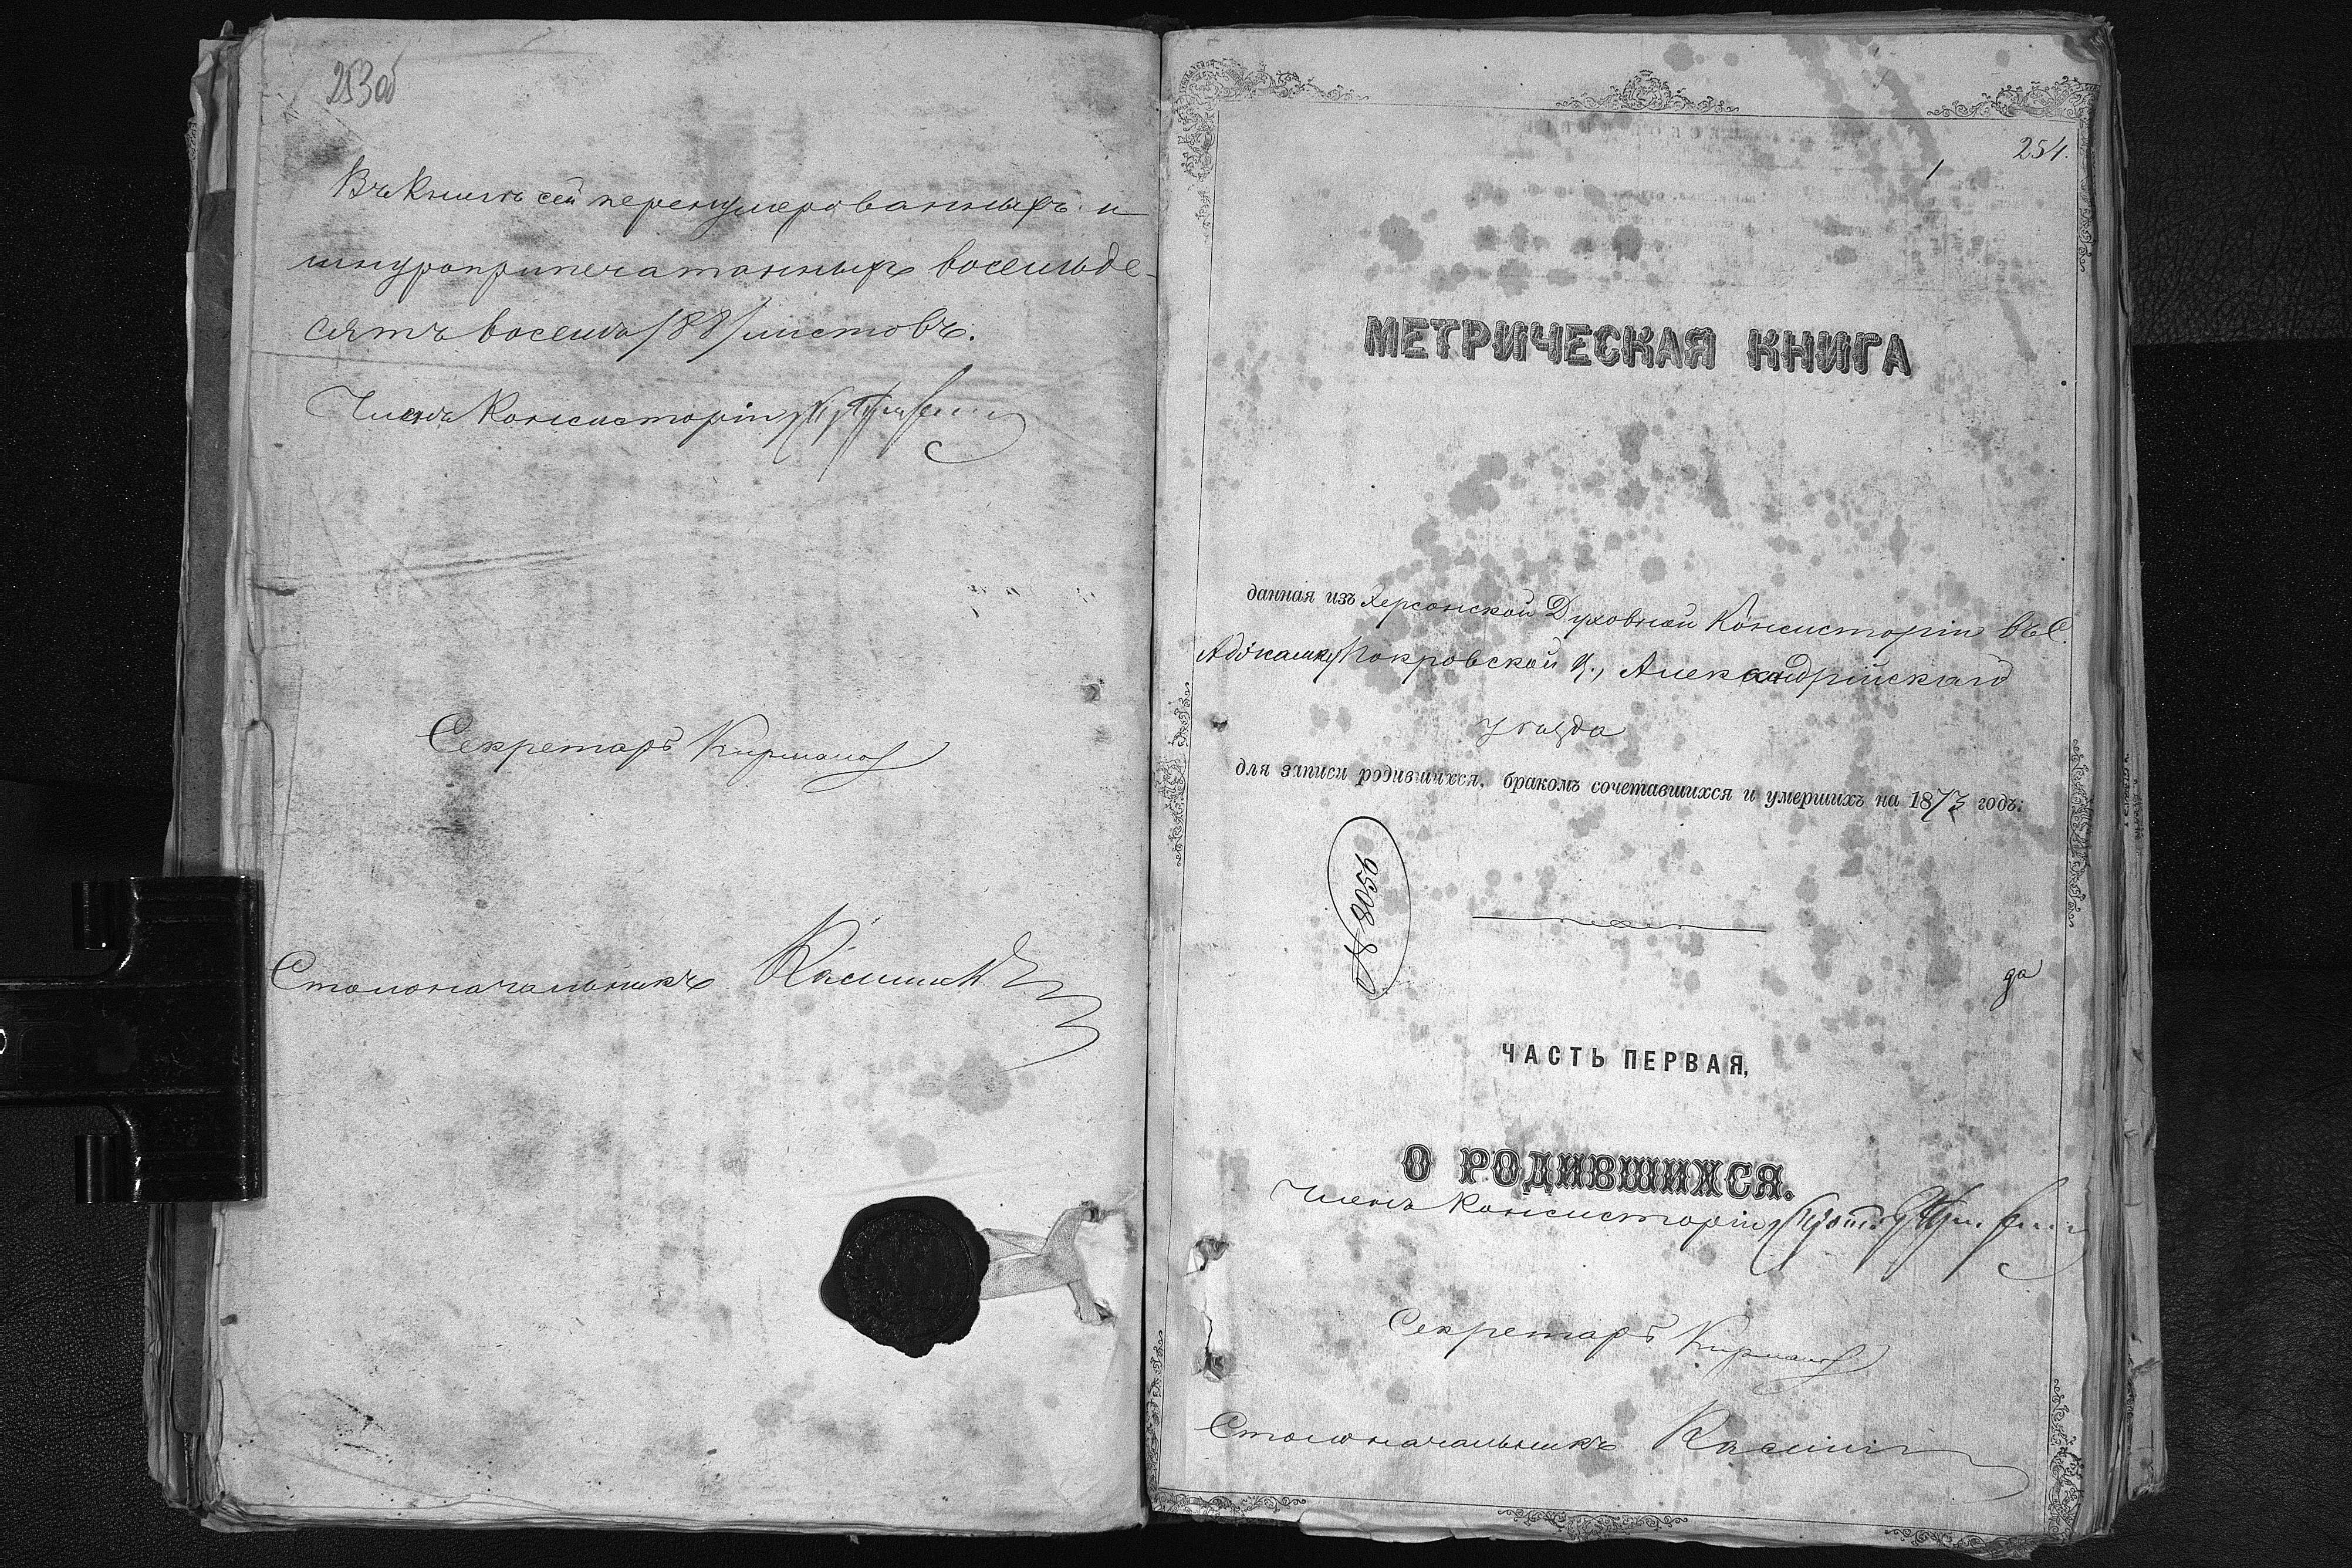 253 об
Въ Книгѣ сей перенумерованныхъ и
шнуроприпечатанныхъ восемьде-
сятъ восемь /88/ листовъ.
Членъ Консисторіи
Секретарь
Столоначальникъ
254.
1
МЕТРИЧЕСКАЯ КНИГА
данная изъ Херсонской Духовной Консисторіи въ С.
Адбкамку Покровской ц., Александрійскаго
уѣзда
для записи родившихся, бракомъ сочетавшихся и умершихъ на 1873 годъ.
№ 8056
да
ЧАСТЬ ПЕРВАЯ,
О РОДИВШИХСЯ.
Членъ Консисторіи
Секретарь
Столоначальникъ